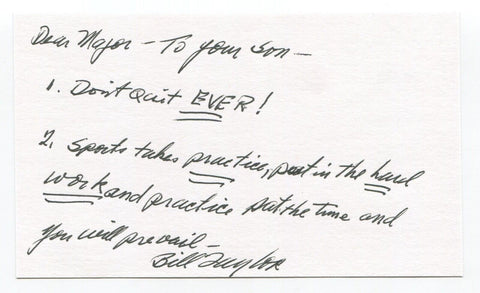 Dear Major - To your son -
1. Don't Quit EVER!
2. Sports takes practice, put in the hard
work and practice put the time and
you will prevail -
Bill Taylor